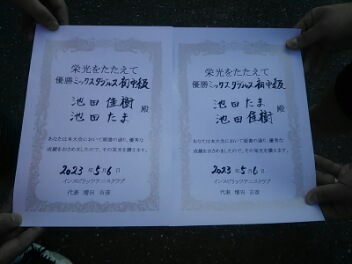 栄光をたたえて
優勝ミックスダブルス初中級
池田 佳樹
池田 たま 殿
あなたは本大会において頭書の通り、優秀な
成績をおさめましたので、その栄光を讃えます。
2023年5月6日
インスピリッツテニスクラブ
代表 増田 吉彦
栄光をたたえて
優勝ミックスダブルス初中級
池田 たま
池田 佳樹 殿
あなたは本大会において頭書の通り、優秀な
成績をおさめましたので、その栄光を讃えます。
2023年5月6日
インスピリッツテニスクラブ
代表 増田 吉彦